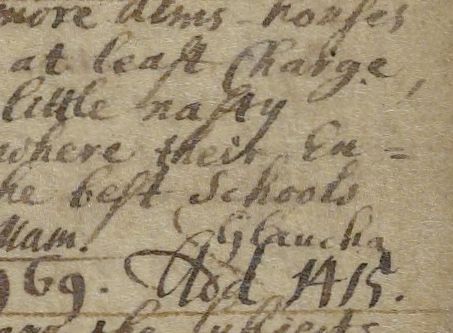 more Alms-houses
at least Charge,
little nasty
where their En=
he best Schools
Mam. Glaucha
969. Add 1415.
the subjects